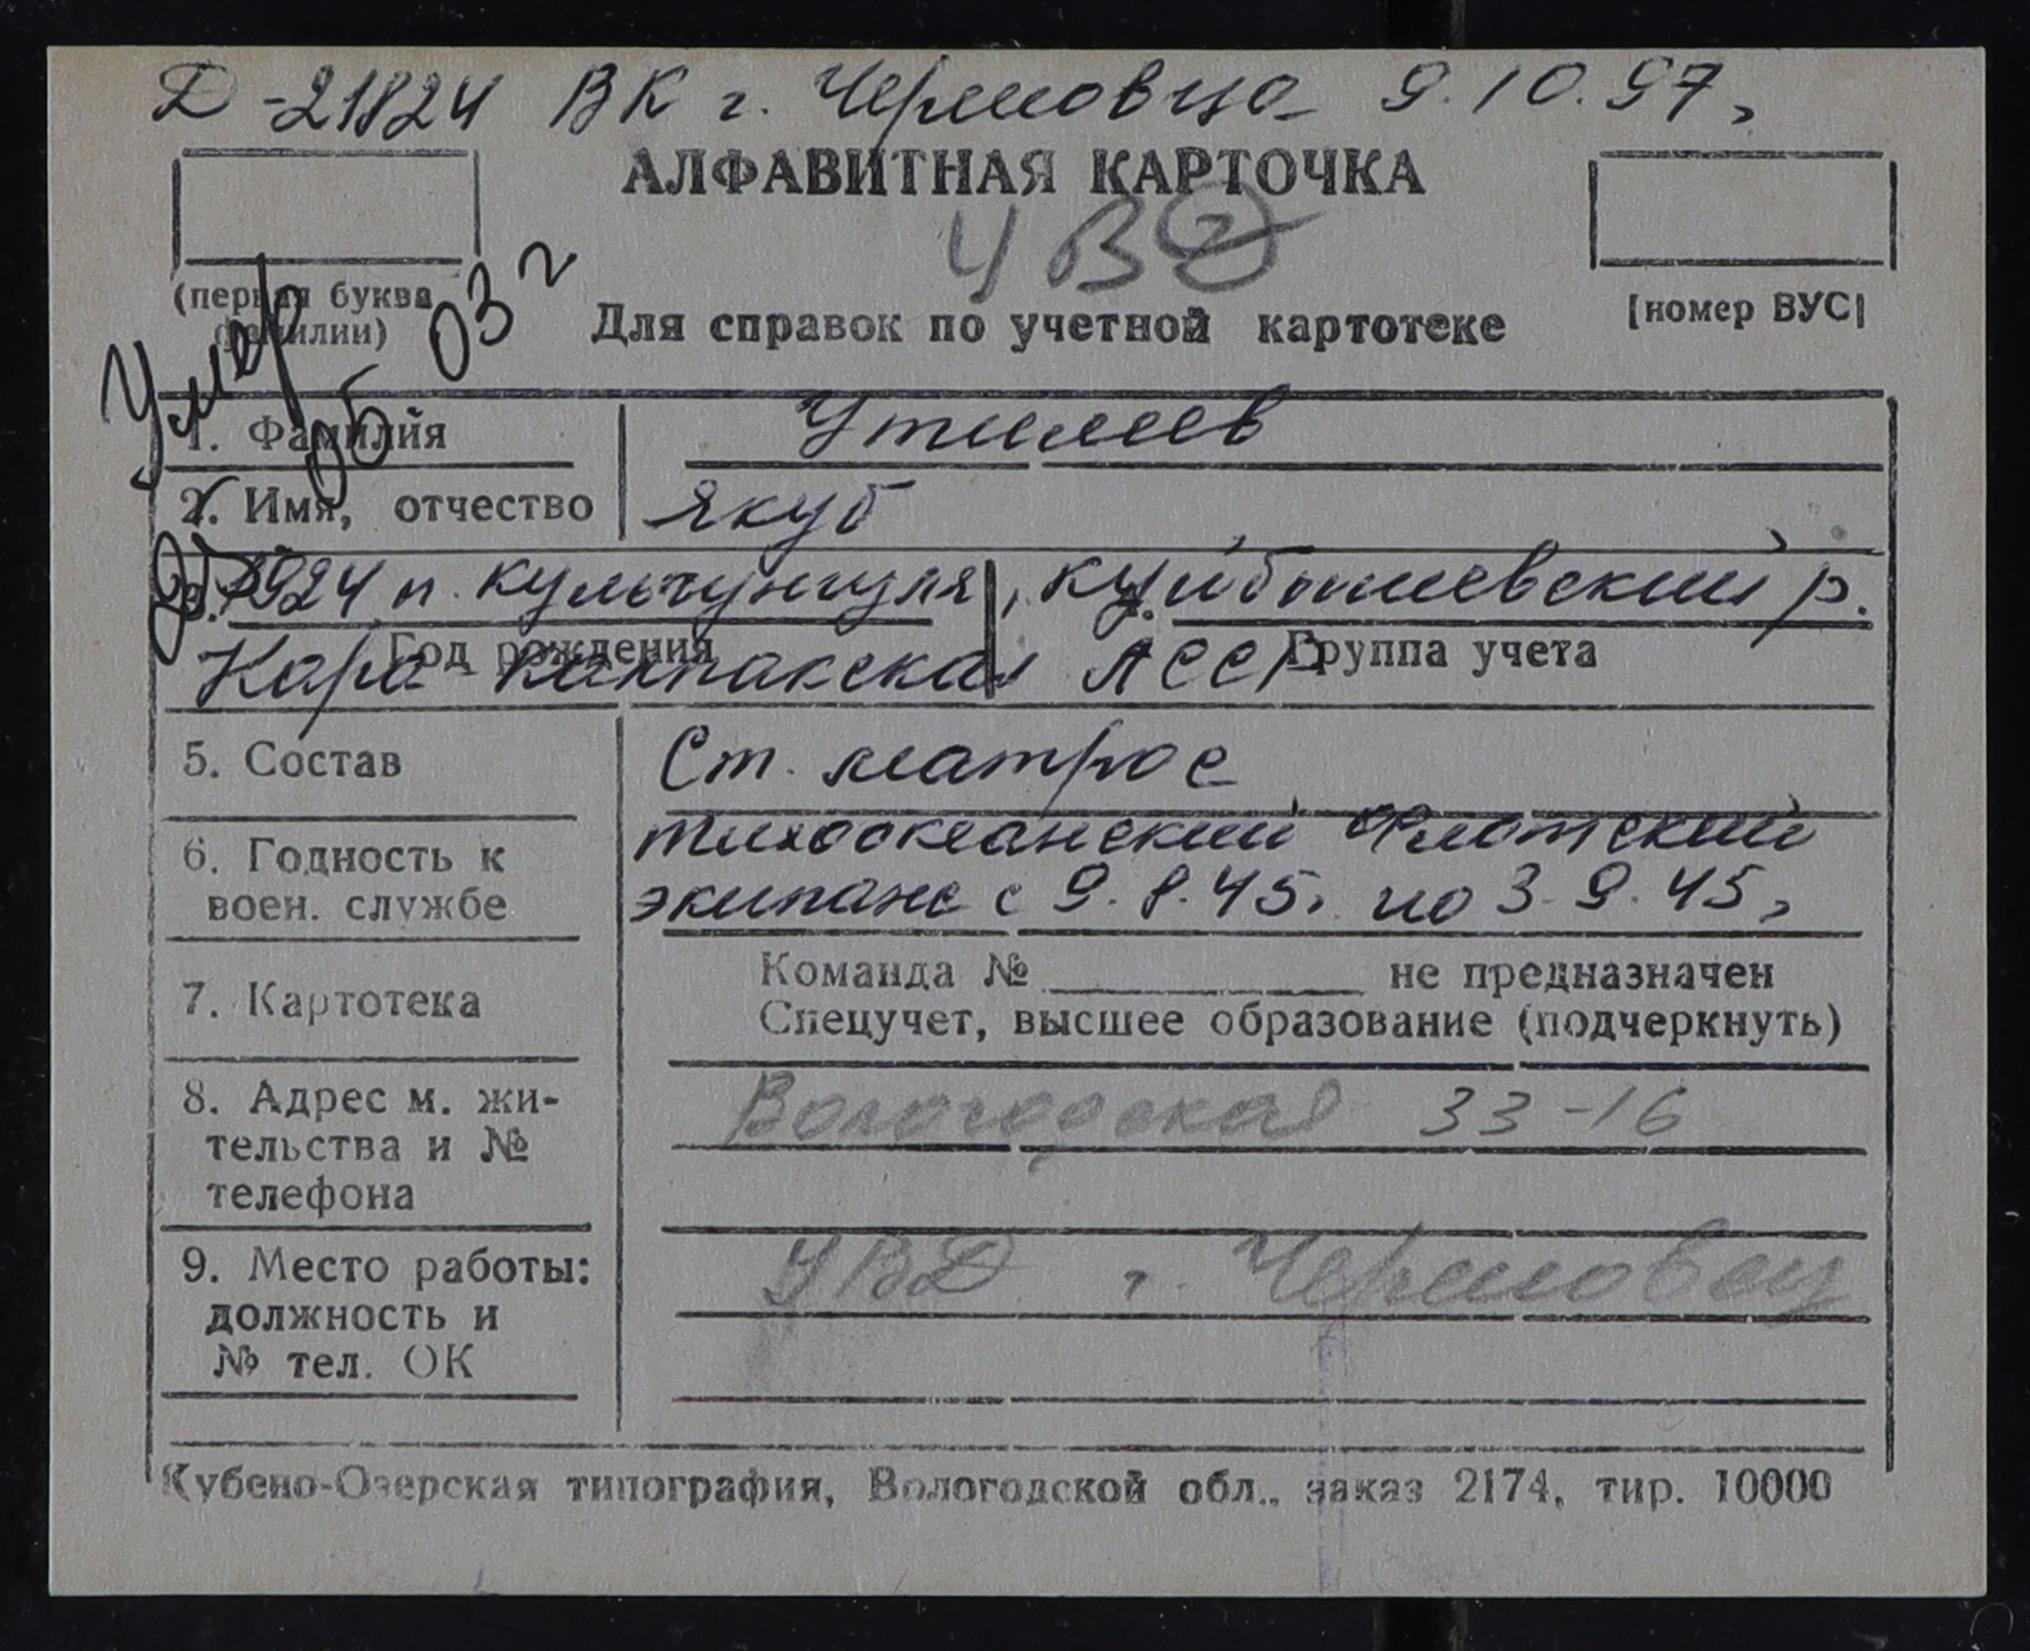 Д-21824 ВК г. Череповца 9.10.97,
АЛФАВИТНАЯ КАРТОЧКА
УВД
(первая буква
фамилии)
[номер ВУС]
Для справок по учетной картотеке
Умер 06 03 г
1. Фамилия Утилеев
2. Имя, отчество Якуб
3. 1924 п. Культунгуля, Куйбышевский р.
Год рождения Группа учета
Кара-Калпакская АССР
5. Состав Ст. матрос
6. Годность к
воен. службе
Тихоокеанский Флотский
экипаж с 9.8.45. по 3.9.45,
7. Картотека
Команда № не предназначен
Спецучет, высшее образование (подчеркнуть)
8. Адрес м. жи-
тельства и №
телефона
Вологодская 33-16
9. Место работы:
должность и
№ тел. ОК
УВД г. Череповец
Кубено-Озерская типография, Вологодской обл., заказ 2174, тир. 10000